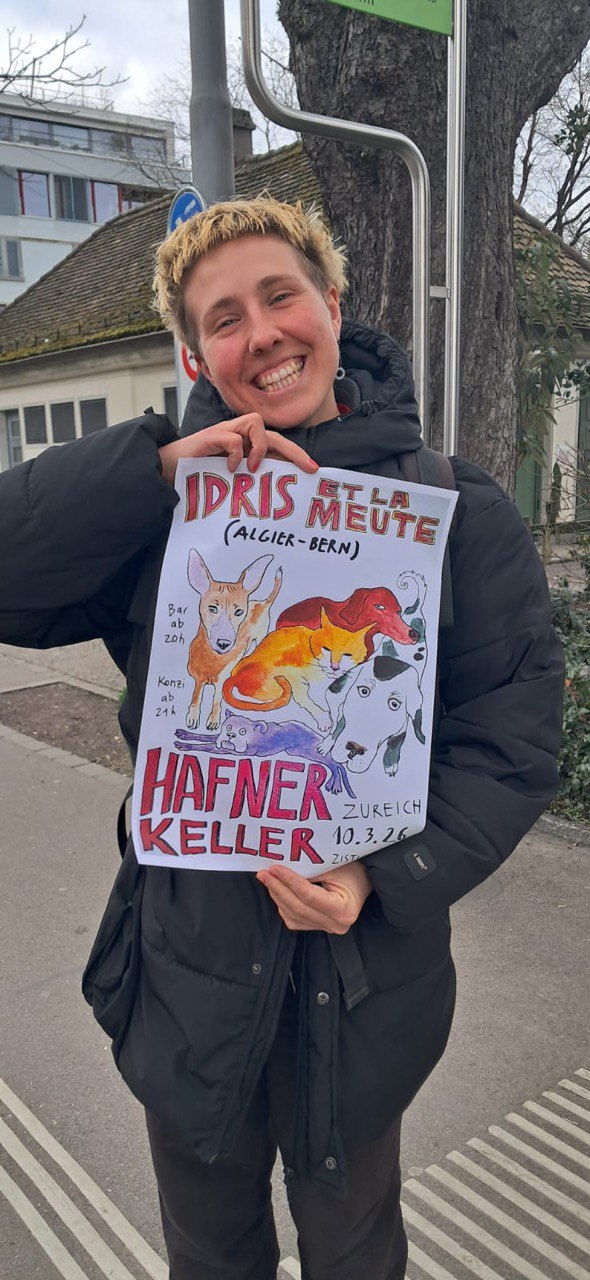 IDRIS ET LA
MEUTE
(ALGIER-BERN)
Bar
ab
20h
Konzi
ab
21h
HAFNER
KELLER
ZUREICH
10.3.26